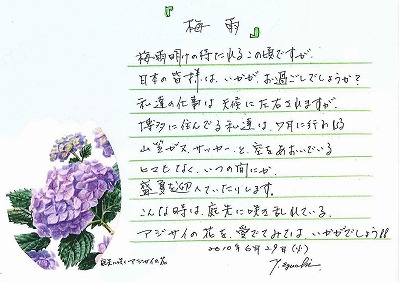 『梅雨』
梅雨明けの待たれるこの頃ですが、
日本の皆様は、いかがお過ごしでしょうか?
私達の仕事は天候に左右されますが、
博多に住んでる私達は、7月に行われる
山笠が、サッカーと、空をあおいでいる
ヒマもなく、いつの間にか、
盛夏を迎えていたりします。
こんな時は、庭先に咲き乱れている、
アジサイの花を、愛でてみては、いかがでしょう!!
2010年6月29日(火)
庭先に咲くアジサイの花